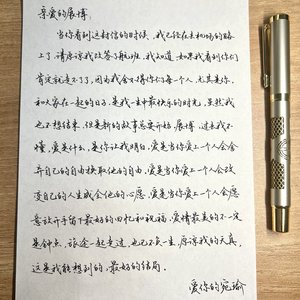 亲爱的展博：
当你看到这封信的时候，我已经在去机场的路
上了，请原谅我改签了航班，我知道，如果我看到你们
肯定就走不了了，因为我舍不得你们每一个人，尤其是你，
和大家在一起的日子，是我一生中最快乐的时光，虽然我
也不想结束，但是新的故事总要开始，展博，过去我不
懂，爱是什么，是你让我明白，爱是当你爱上一个人会舍
弃自己的自由换取他的自由，爱是当你爱上一个人会改
变自己的人生成全他的心愿，爱是当你爱上一个人会愿
意放开手留下最好的回忆和祝福，爱情最美的不一定
是终点，旅途一起走过，也已不负一生，原谅我的天真，
这是我能想到的，最好的结局。
爱你的宛瑜